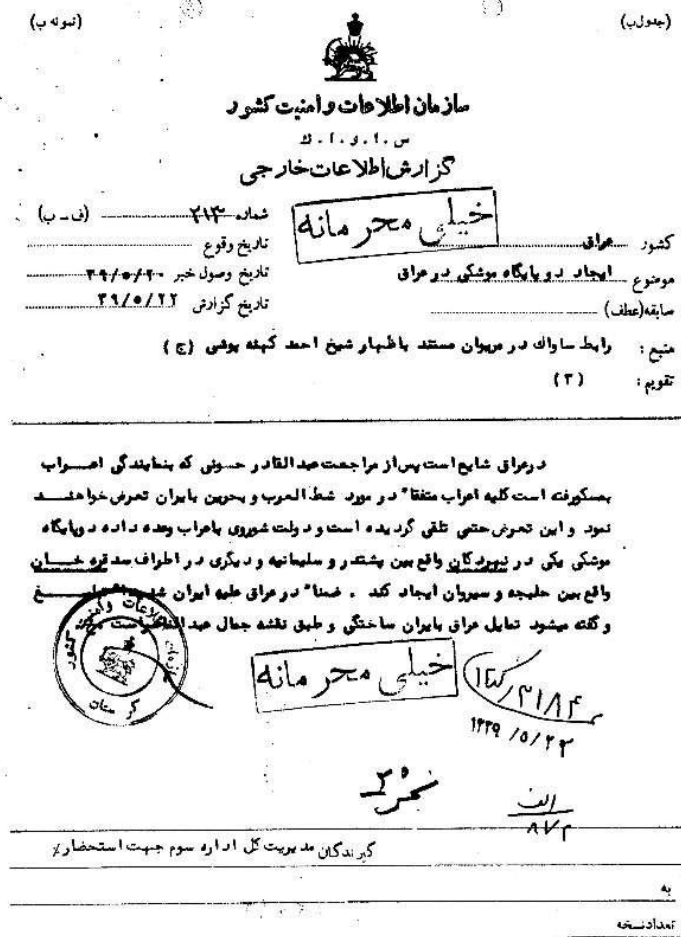 (جدول ب)
(نمونه ب)
سازمان اطلاعات و امنیت کشور
س . ا . و . ا . ک
گزارش اطلاعات خارجی
خیلی محرمانه
شماره ۲۱۳ (ف ـ ب)
کشور عراق
تاریخ وقوع
موضوع ایجاد دو پایگاه موشکی در عراق
تاریخ وصول خبر ۳۹/۵/۲۰
سابقه(عطف)
تاریخ گزارش ۳۹/۵/۲۲
منبع : رابط ساواک در مریوان مستند باظهار شیخ احمد کهنه پوشی (ج)
تقویم : (۳)
در عراق شایع است پس از مراجعت عبدالقادر حسونی که بنمایندگی اعراب
بمسکو رفته است کلیه اعراب متفقا" در مورد شط العرب و بحرین بایران تعرض خواهند
نمود و این تعرض حتمی تلقی گردیده است و دولت شوروی باعراب وعده داده دو پایگاه
موشکی یکی در واقع بین پشتدر و سلیمانیه و دیگری در اطراف خان
واقع بین حلبجه و سیروان ایجاد کند . ضمنا" در عراق علیه ایران
و گفته میشود تمایل عراق بایران ساختگی و طبق نقشه جمال عبدالناصر است
سازمان اطلاعات و امنیت کشور
کردستان
خیلی محرمانه
۱۳۳۹/۵/۲۳
الف
۸۷۲
گیرندگان مدیریت کل اداره سوم جهت استحضار٪
به
تعدادنسخه